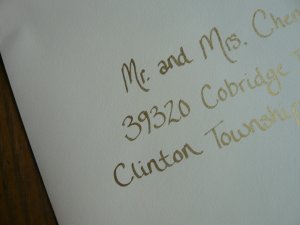 Mr. and Mrs. Chen
39320 Cobridge
Clinton Township